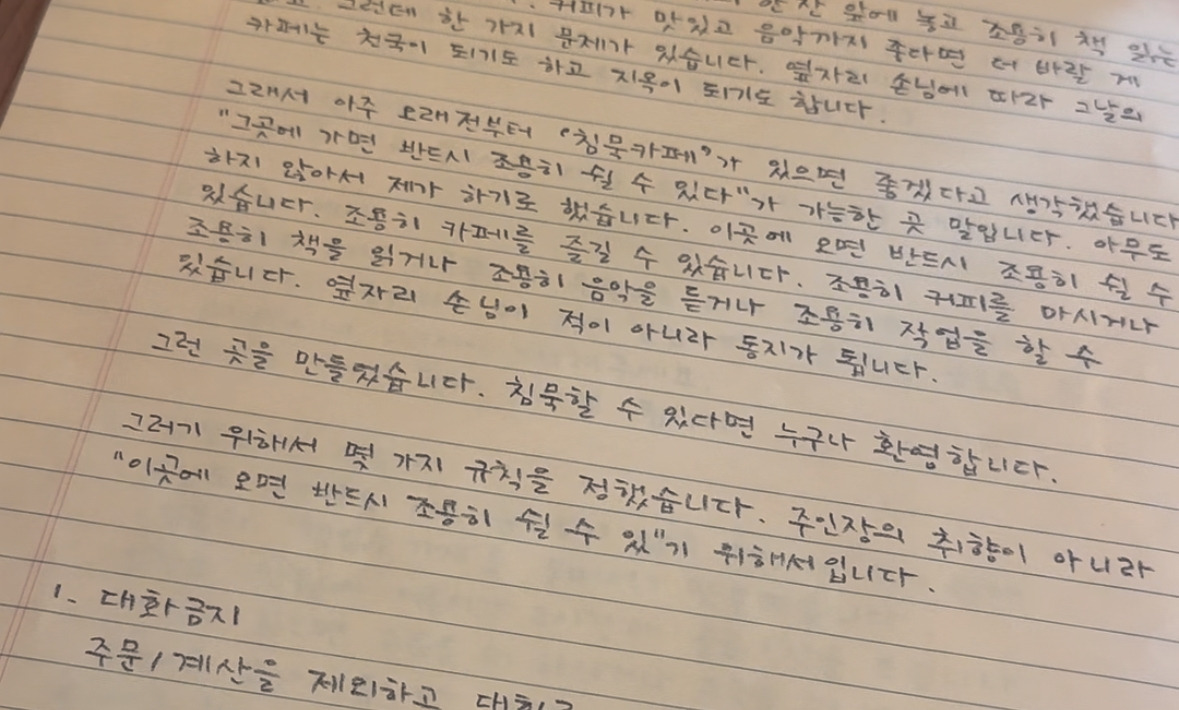 한 잔 앞에 놓고 조용히 책 읽는
그런데 한 가지 문제가 있습니다. 커피가 맛있고 음악까지 좋다면 더 바랄 게
카페는 천국이 되기도 하고 지옥이 되기도 합니다. 옆자리 손님에 따라 그날의
그래서 아주 오래전부터 '침묵카페'가 있으면 좋겠다고 생각했습니다
"그곳에 가면 반드시 조용히 쉴 수 있다"가 가능한 곳 말입니다. 아무도
하지 않아서 제가 하기로 했습니다. 이곳에 오면 반드시 조용히 쉴 수
있습니다. 조용히 카페를 즐길 수 있습니다. 조용히 커피를 마시거나
조용히 책을 읽거나 조용히 음악을 듣거나 조용히 작업을 할 수
있습니다. 옆자리 손님이 적이 아니라 동지가 됩니다.
그런 곳을 만들었습니다. 침묵할 수 있다면 누구나 환영합니다.
그러기 위해서 몇 가지 규칙을 정했습니다. 주인장의 취향이 아니라
"이곳에 오면 반드시 조용히 쉴 수 있"기 위해서입니다.
1. 대화금지
주문/계산을 제외하고